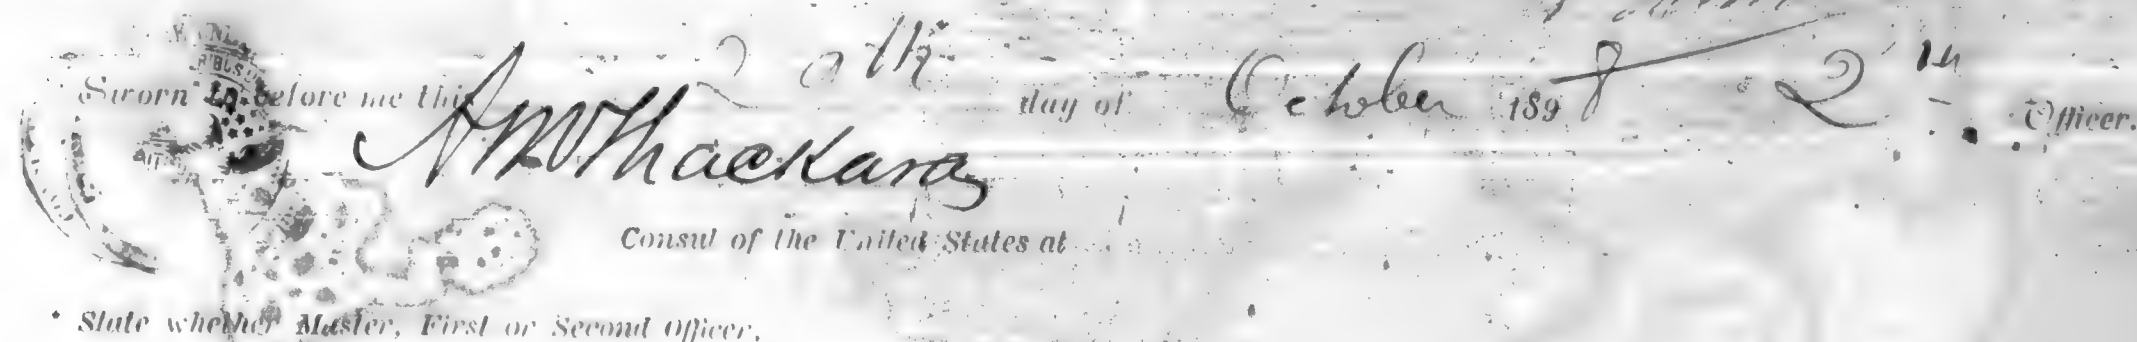 Sworn to before me this 20th day of October 1898 2nd Officer.
A M Thackara
Consul of the United States at
* State whether Master, First or Second Officer.